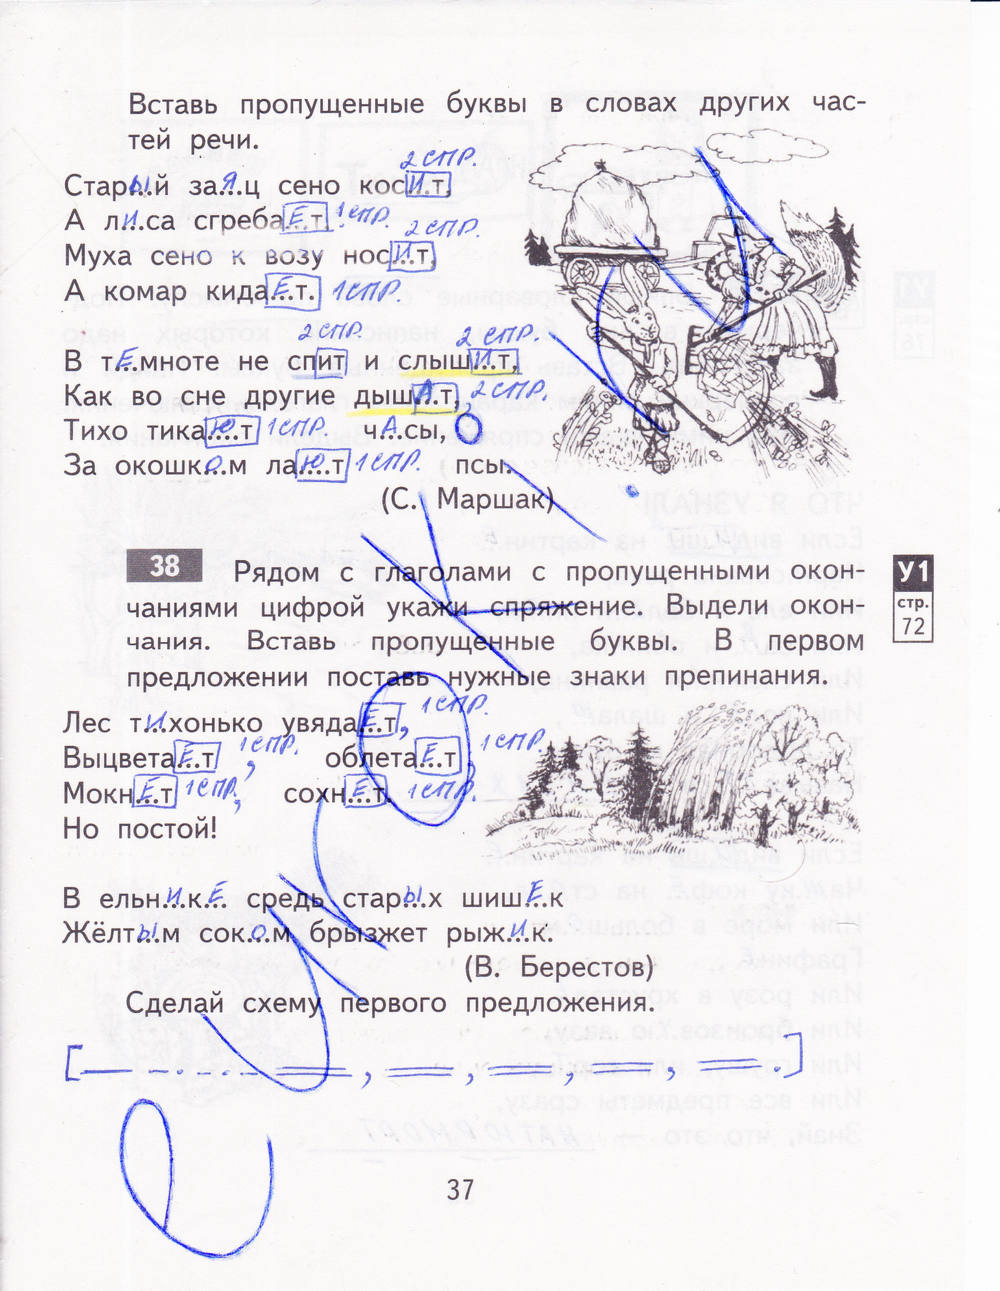 Вставь пропущенные буквы в словах других час-
тей речи.
2 СПР.
Стар.Ы.й за.Я.ц сено кос И.т,
А л.И.са сгреба Е.т. 1 СПР. 2 СПР.
Муха сено к возу нос И.т,
А комар кида Е.т. 1 СПР.
2 СПР. 2 СПР.
В т.Е.мноте не спит и слыш И.т,
Как во сне другие дыш А.т, 2 СПР.
Тихо тика Ю.т 1 СПР. ч.А.сы,
За окошк.О.м ла Ю.т 1 СПР. псы.
(С. Маршак)
38 Рядом с глаголами с пропущенными окон-
чаниями цифрой укажи спряжение. Выдели окон-
чания. Вставь пропущенные буквы. В первом
предложении поставь нужные знаки препинания.
У1
стр.
72
Лес т.И.хонько увяда Е.т, 1 СПР.
Выцвета Е.т 1 СПР., облета Е.т 1 СПР.,
Мокн Е.т 1 СПР., сохн Е.т. 1 СПР.
Но постой!
В ельн.И.к.Е. средь стар.Ы.х шиш.Е.к
Жёлт.Ы.м сок.О.м брызжет рыж.И.к.
(В. Берестов)
Сделай схему первого предложения.
37